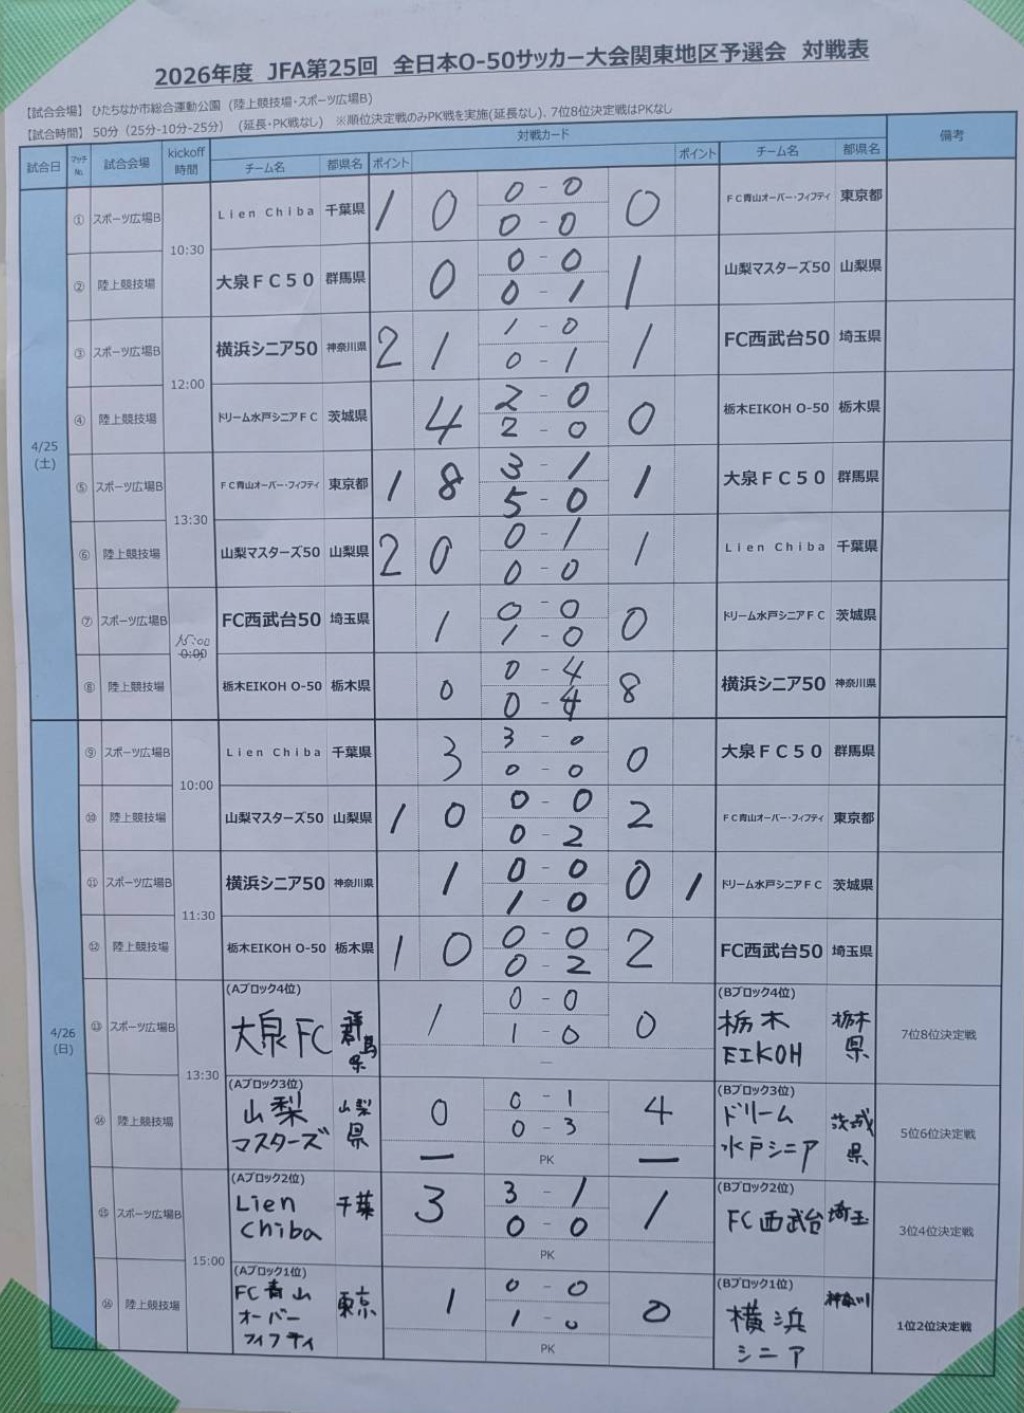 2026年度 JFA第25回 全日本O-50サッカー大会関東地区予選会 対戦表
【試合会場】 ひたちなか市総合運動公園 (陸上競技場・スポーツ広場B)
【試合時間】 50分 (25分-10分-25分) (延長・PK戦なし) ※順位決定戦のみPK戦を実施(延長なし)、7位8位決定戦はPKなし
試合日 マッチNo. 試合会場 kickoff時間 対戦カード 備考
チーム名 都県名 ポイント ポイント チーム名 都県名
4/25(土)
① スポーツ広場B 10:30 Lien Chiba 千葉県 1 0 0-0 0-0 0 FC青山オーバー・フィフティ 東京都
② 陸上競技場 大泉FC50 群馬県 0 0-0 0-1 1 山梨マスターズ50 山梨県
③ スポーツ広場B 12:00 横浜シニア50 神奈川県 2 1 1-0 0-1 1 FC西武台50 埼玉県
④ 陸上競技場 ドリーム水戸シニアFC 茨城県 4 2-0 2-0 0 栃木EIKOH O-50 栃木県
⑤ スポーツ広場B 13:30 FC青山オーバー・フィフティ 東京都 1 8 3-1 5-0 1 大泉FC50 群馬県
⑥ 陸上競技場 山梨マスターズ50 山梨県 2 0 0-1 0-0 1 Lien Chiba 千葉県
⑦ スポーツ広場B 15:00 0:00 FC西武台50 埼玉県 1 0-0 1-0 0 ドリーム水戸シニアFC 茨城県
⑧ 陸上競技場 栃木EIKOH O-50 栃木県 0 0-4 0-4 8 横浜シニア50 神奈川県
4/26(日)
⑨ スポーツ広場B 10:00 Lien Chiba 千葉県 3 3-0 0-0 0 大泉FC50 群馬県
⑩ 陸上競技場 山梨マスターズ50 山梨県 1 0 0-0 0-2 2 FC青山オーバー・フィフティ 東京都
⑪ スポーツ広場B 11:30 横浜シニア50 神奈川県 1 0-0 1-0 0 1 ドリーム水戸シニアFC 茨城県
⑫ 陸上競技場 栃木EIKOH O-50 栃木県 1 0 0-0 0-2 2 FC西武台50 埼玉県
⑬ スポーツ広場B 13:30 (Aブロック4位) 大泉FC 群馬県 1 0-0 1-0 - 0 (Bブロック4位) 栃木EIKOH 栃木県 7位8位決定戦
⑭ 陸上競技場 (Aブロック3位) 山梨マスターズ 山梨県 0 - 0-1 0-3 PK 4 - (Bブロック3位) ドリーム水戸シニア 茨城県 5位6位決定戦
⑮ スポーツ広場B 15:00 (Aブロック2位) Lien Chiba 千葉 3 3-1 0-0 PK 1 (Bブロック2位) FC西武台 埼玉 3位4位決定戦
⑯ 陸上競技場 (Aブロック1位) FC青山オーバーフィフティ 東京 1 0-0 1-0 PK 0 (Bブロック1位) 横浜シニア 神奈川 1位2位決定戦